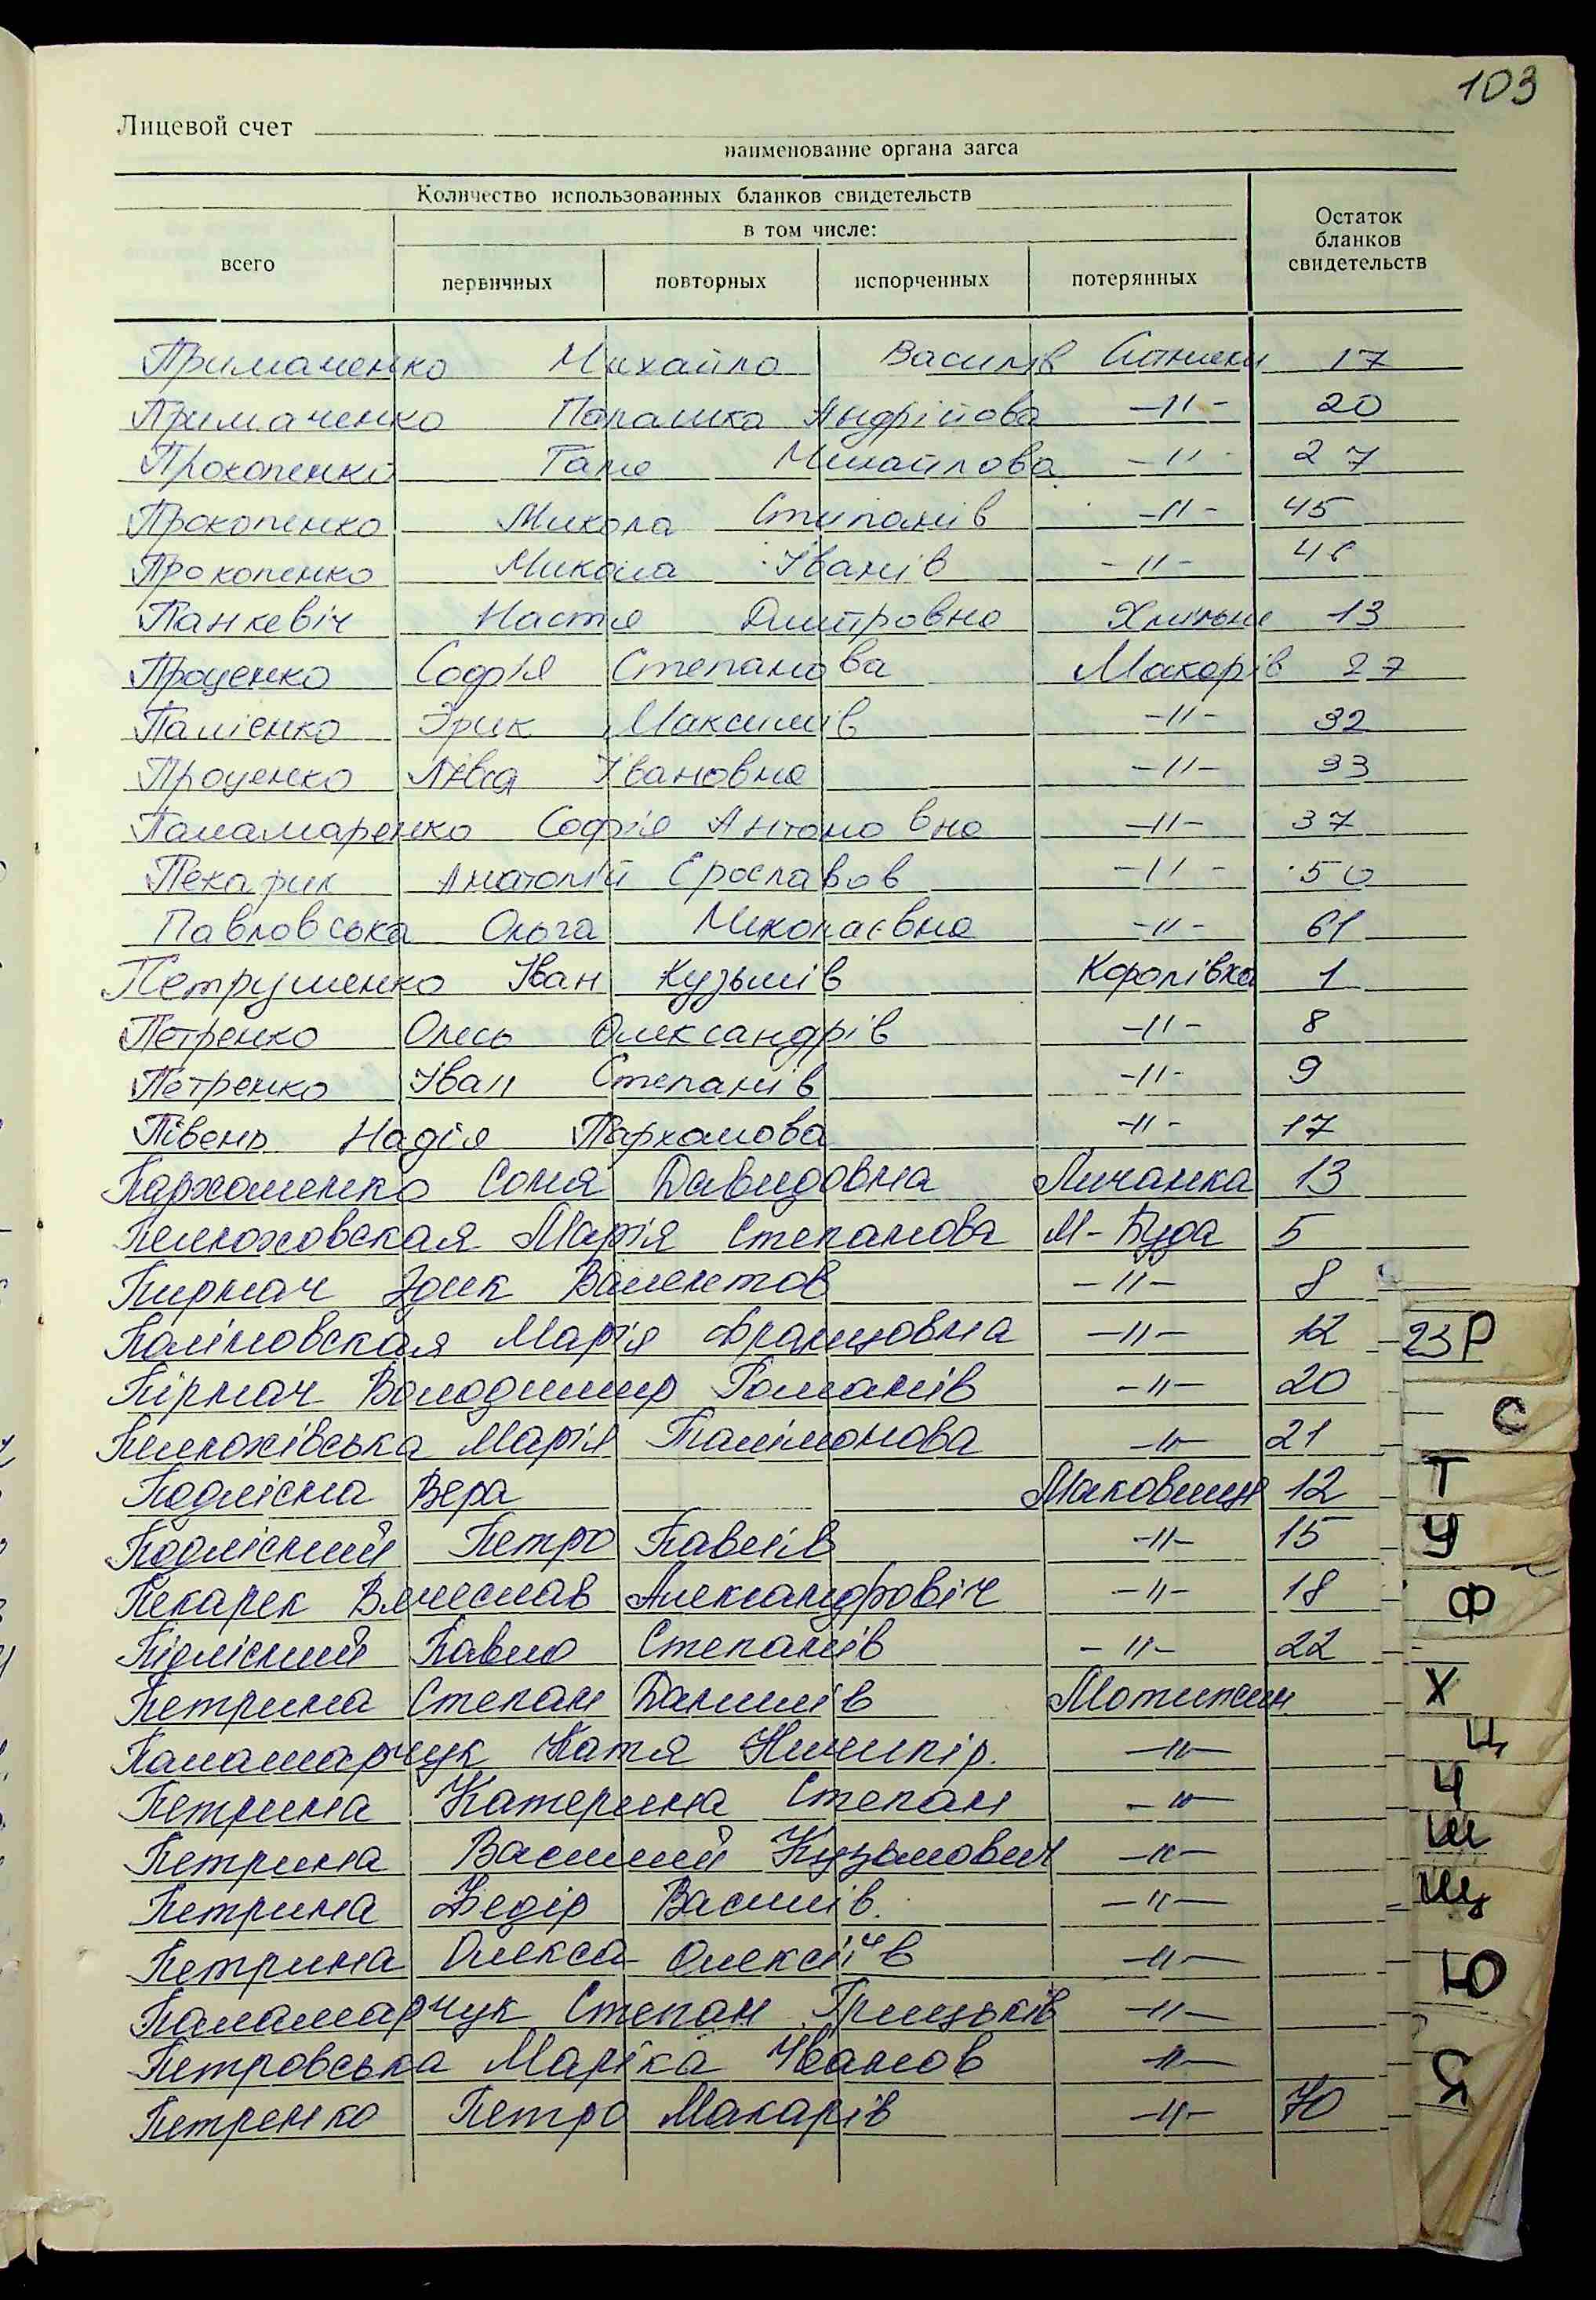 103
Лицевой счет
наименование органа загса
Количество использованных бланков свидетельств
в том числе:
Остаток бланков свидетельств
всего первичных повторных испорченных потерянных
Примаченко Михайло Василів Ситники 17
Примаченко Парашка Андрійова -11- 20
Прокопенко Галя Михайлова -11- 27
Прокопенко Микола Степанів -11- 45
Прокопенко Микола Іванів -11- 46
Панкевіч Настя Дмитровна 13
Проценко Софія Степанова Макарів 27
Палієнко Эрик Максимів -11- 32
Проценко Лівія Івановна -11- 33
Паламаренко Софія Антоновна -11- 37
Пекарик Анатолій Єрославов -11- 50
Павловська Ольга Миколаєвна -11- 61
Петрушенко Іван Кузьмів Королівка 1
Петренко Олесь Олександрів -11- 8
Петренко Іван Степанів -11- 9
Півень Надія Пархомова -11- 17
Пархоменко Соня Давидовна Личанка 13
Пилюховская Марія Степанова М-Буда 5
Пирнач Эдик Валентов -11- 8
Марія Францовна -11- 12 -23
Пірнач Володимир Романів -11- 20
Марія -11- 21
Подлісна Вера Маковище 12
Подлісний Петро Павлів -11- 15
Пекарек Вячеслав Александровіч -11- 18
Підлісний Павло Степанів -11- 22
Петрина Степан Данилів Мотижин
Паламарчук Катя Ничипір. -11-
Петрина Катерина Степан -11-
Петрина Василий Кузьмович -11-
Петрина Федір Василів. -11-
Петрина Олекса Олексіїв -11-
Паламарчук Степан Грицьків -11-
Петровська Маріка Іванов -11-
Петренко Петро Макарів -11- 70
Р
С
Т
У
Ф
Х
Ц
Ч
Ш
Щ
Ю
Я